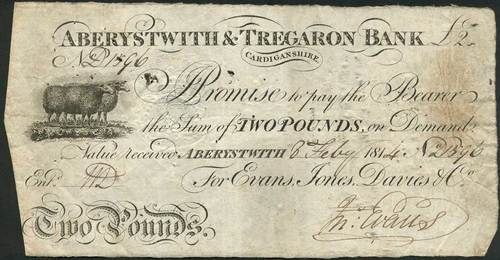 ABERYSTWITH & TREGARON BANK £2
CARDIGANSHIRE.
No D1596
I Promise to pay the Bearer
the Sum of TWO POUNDS, on Demand
Value received ABERYSTWITH 8 Feby 1814. No D1596
Entd.
For Evans, Jones, Davies & Co.
Two Pounds.
Jn. Evans